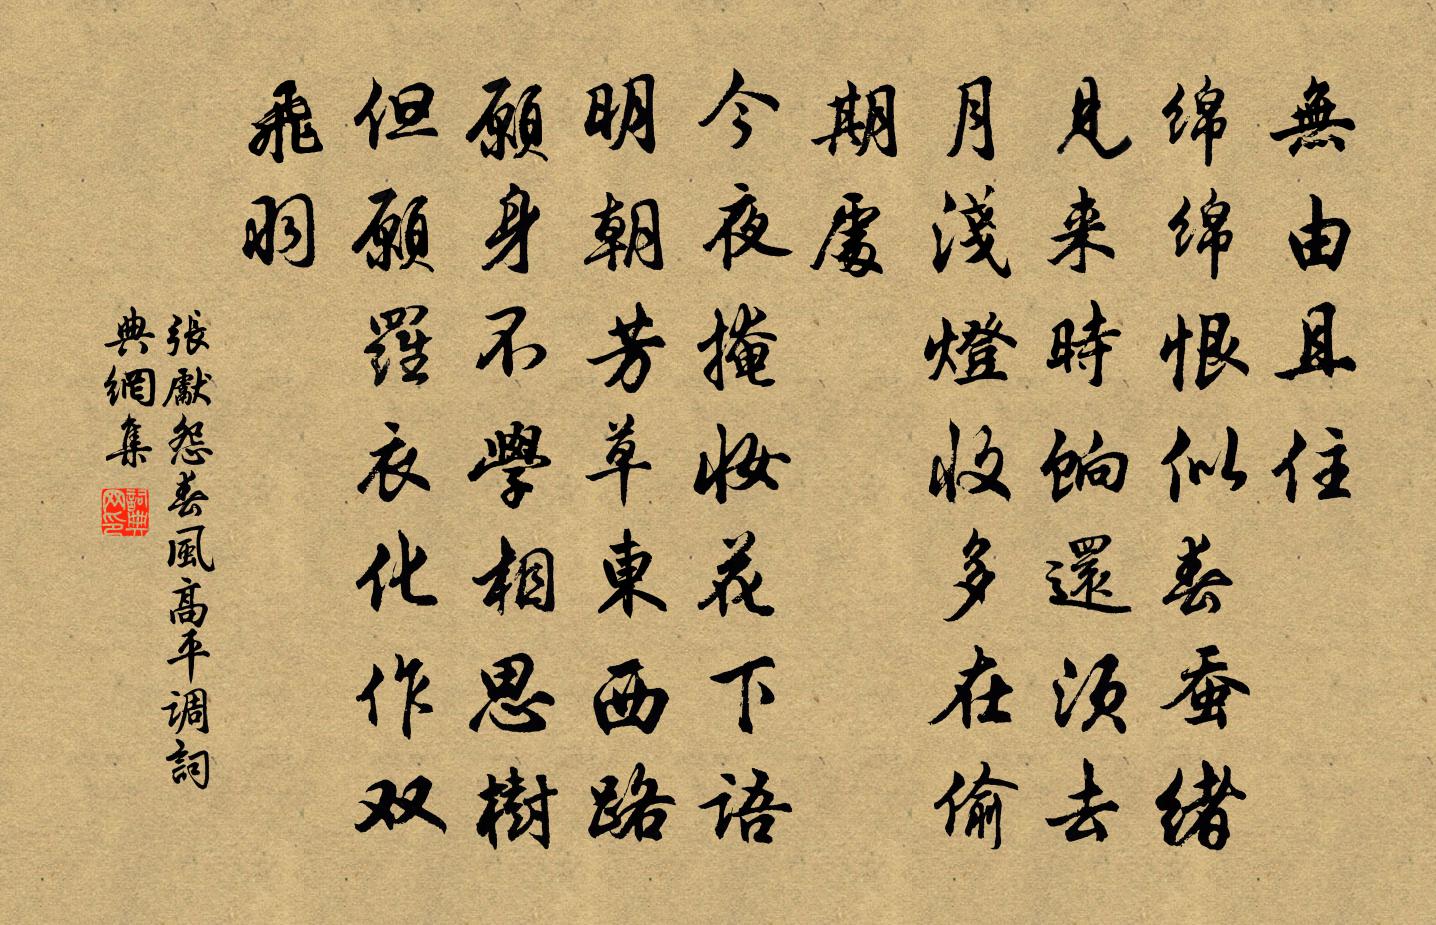 無由且住
綿綿恨似春蚕緒
見来時餉還須去
月淺燈收多在偷
期處
今夜掩妝花下語
明朝芳草東西路
願身不學相思樹
但願羅衣化作双
飛羽
張獻怨春風高平調詞
典網集
詞典网印